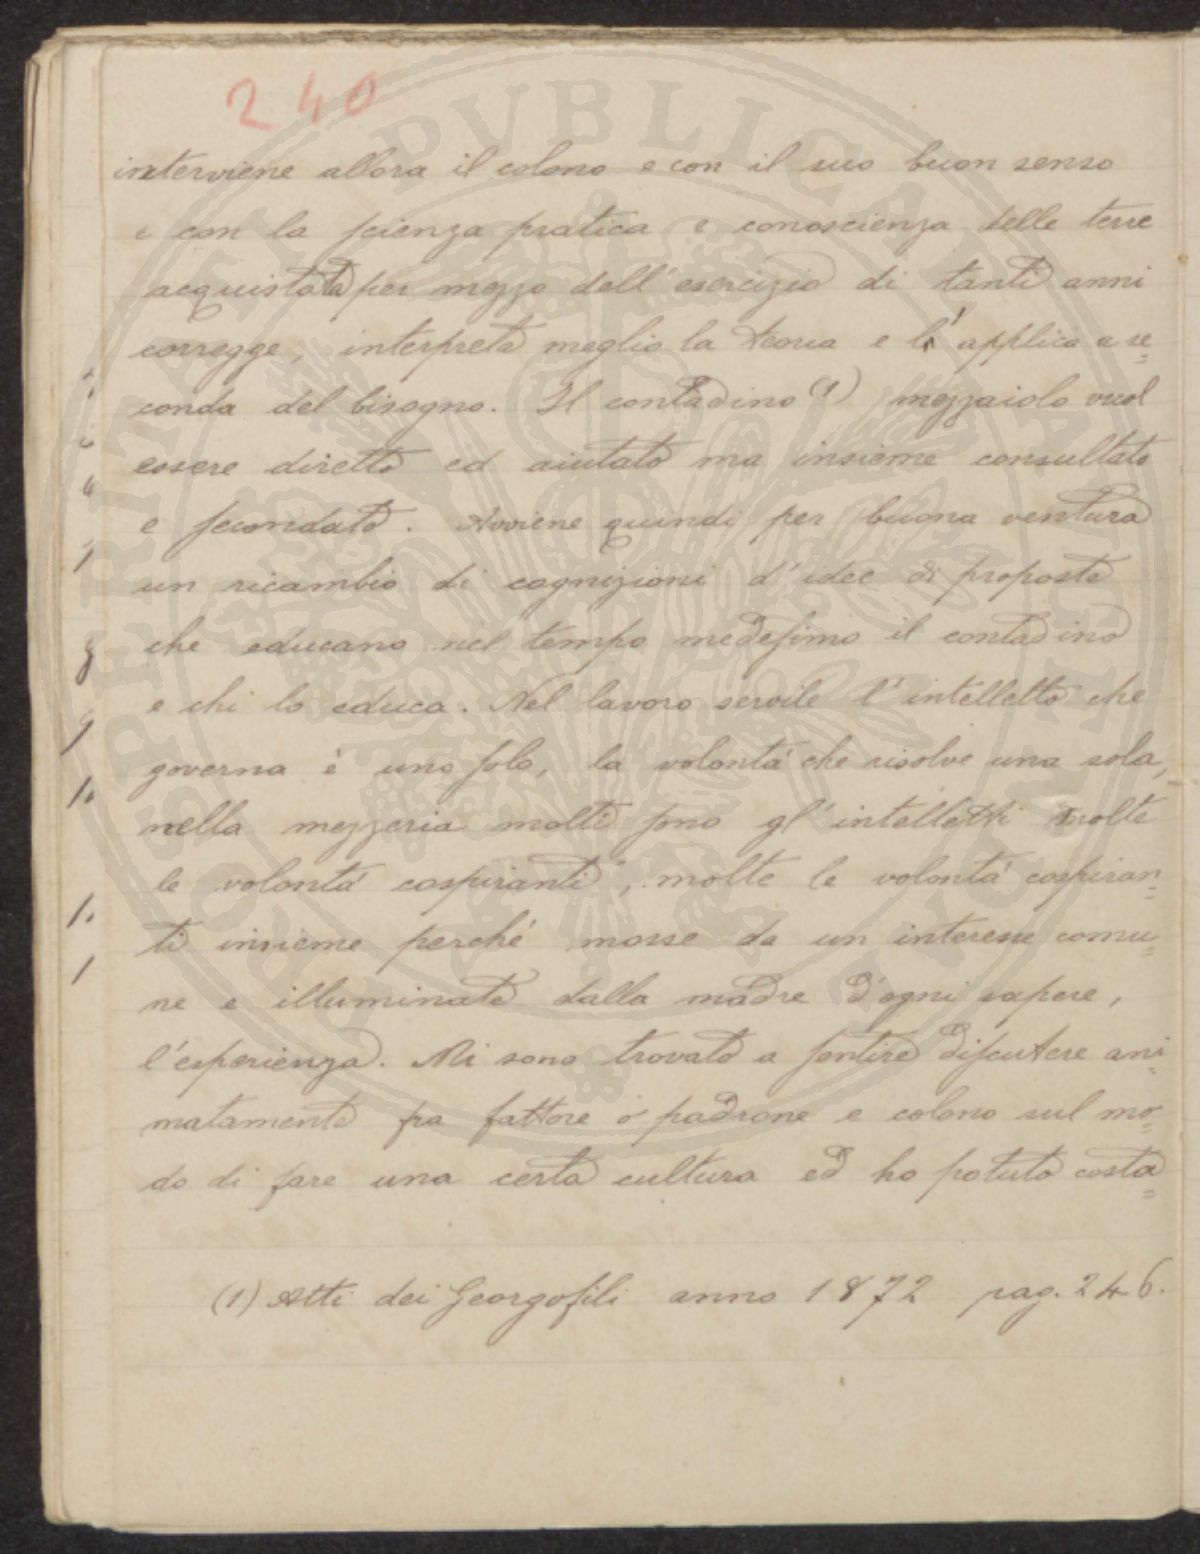 240
interviene allora il colono e con il suo buon senso
e con la scienza pratica e conoscienza delle terre
acquistata per mezzo dell'esercizio di tanti anni
corregge, interpreta meglio la teoria e l'applica a se=
conda del bisogno. Il contadino (1) mezzaiolo vuol
essere diretto ed aiutato ma insieme consultato
e secondato. Avviene quindi per buona ventura
un ricambio di cognizioni d'idee di proposte
che educano nel tempo medesimo il contadino
e chi lo educa. Nel lavoro servile l'intelletto che
governa è uno solo, la volontà che risolve una sola,
nella mezzeria molti sono gl'intelletti molte
le volontà cospiranti, molte le volontà cospiran=
ti insieme perché mosse da un interesse comu=
ne e illuminate dalla madre d'ogni sapere,
l'esperienza. Mi sono trovato a sentire discutere ani=
matamente fra fattore o padrone e colono sul mo=
do di fare una certa cultura ed ho potuto costa=
(1) Atti dei Georgofili anno 1872 pag. 246.